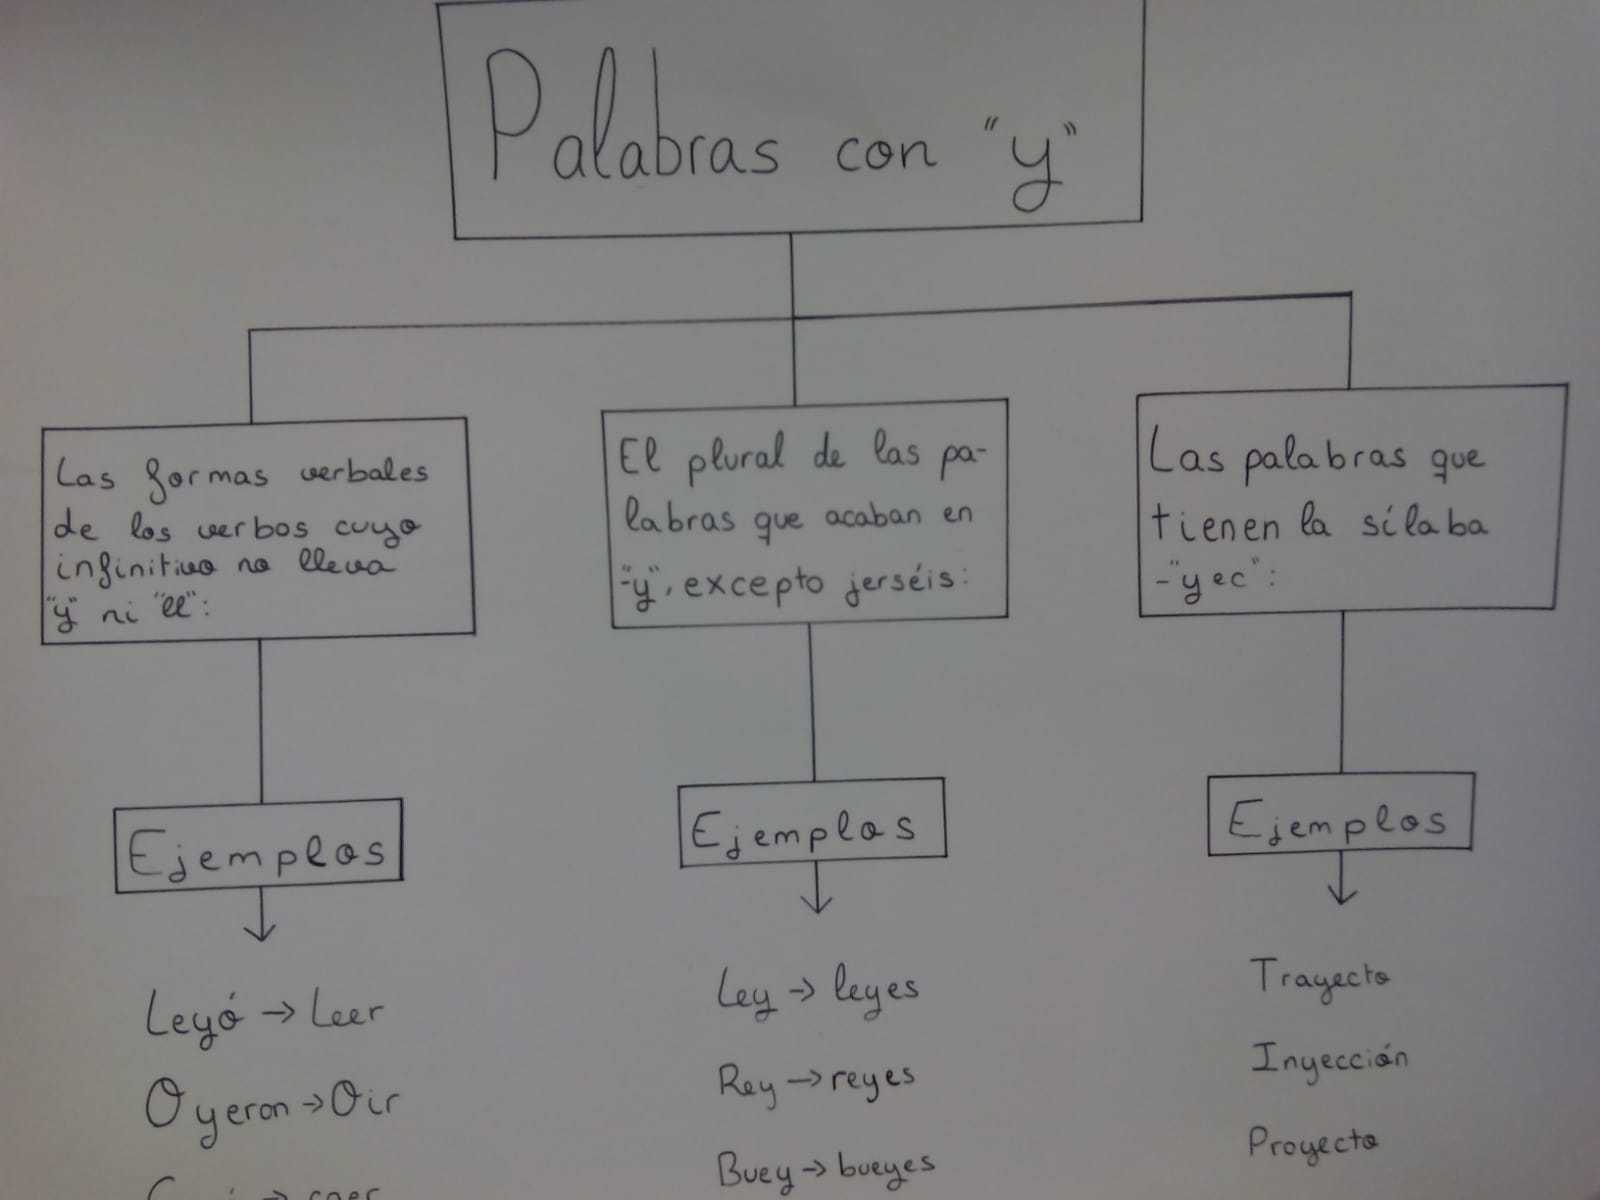 Palabras con "y"
Las formas verbales
de los verbos cuyo
infinitivo no lleva
"y" ni "ll":
El plural de las pa-
labras que acaban en
-"y", excepto jerséis:
Las palabras que
tienen la sílaba
-"yec":
Ejemplos
Leyó → Leer
Oyeron → Oir
→ caer
Ejemplos
Ley → leyes
Rey → reyes
Buey → bueyes
Ejemplos
Trayecto
Inyección
Proyecto